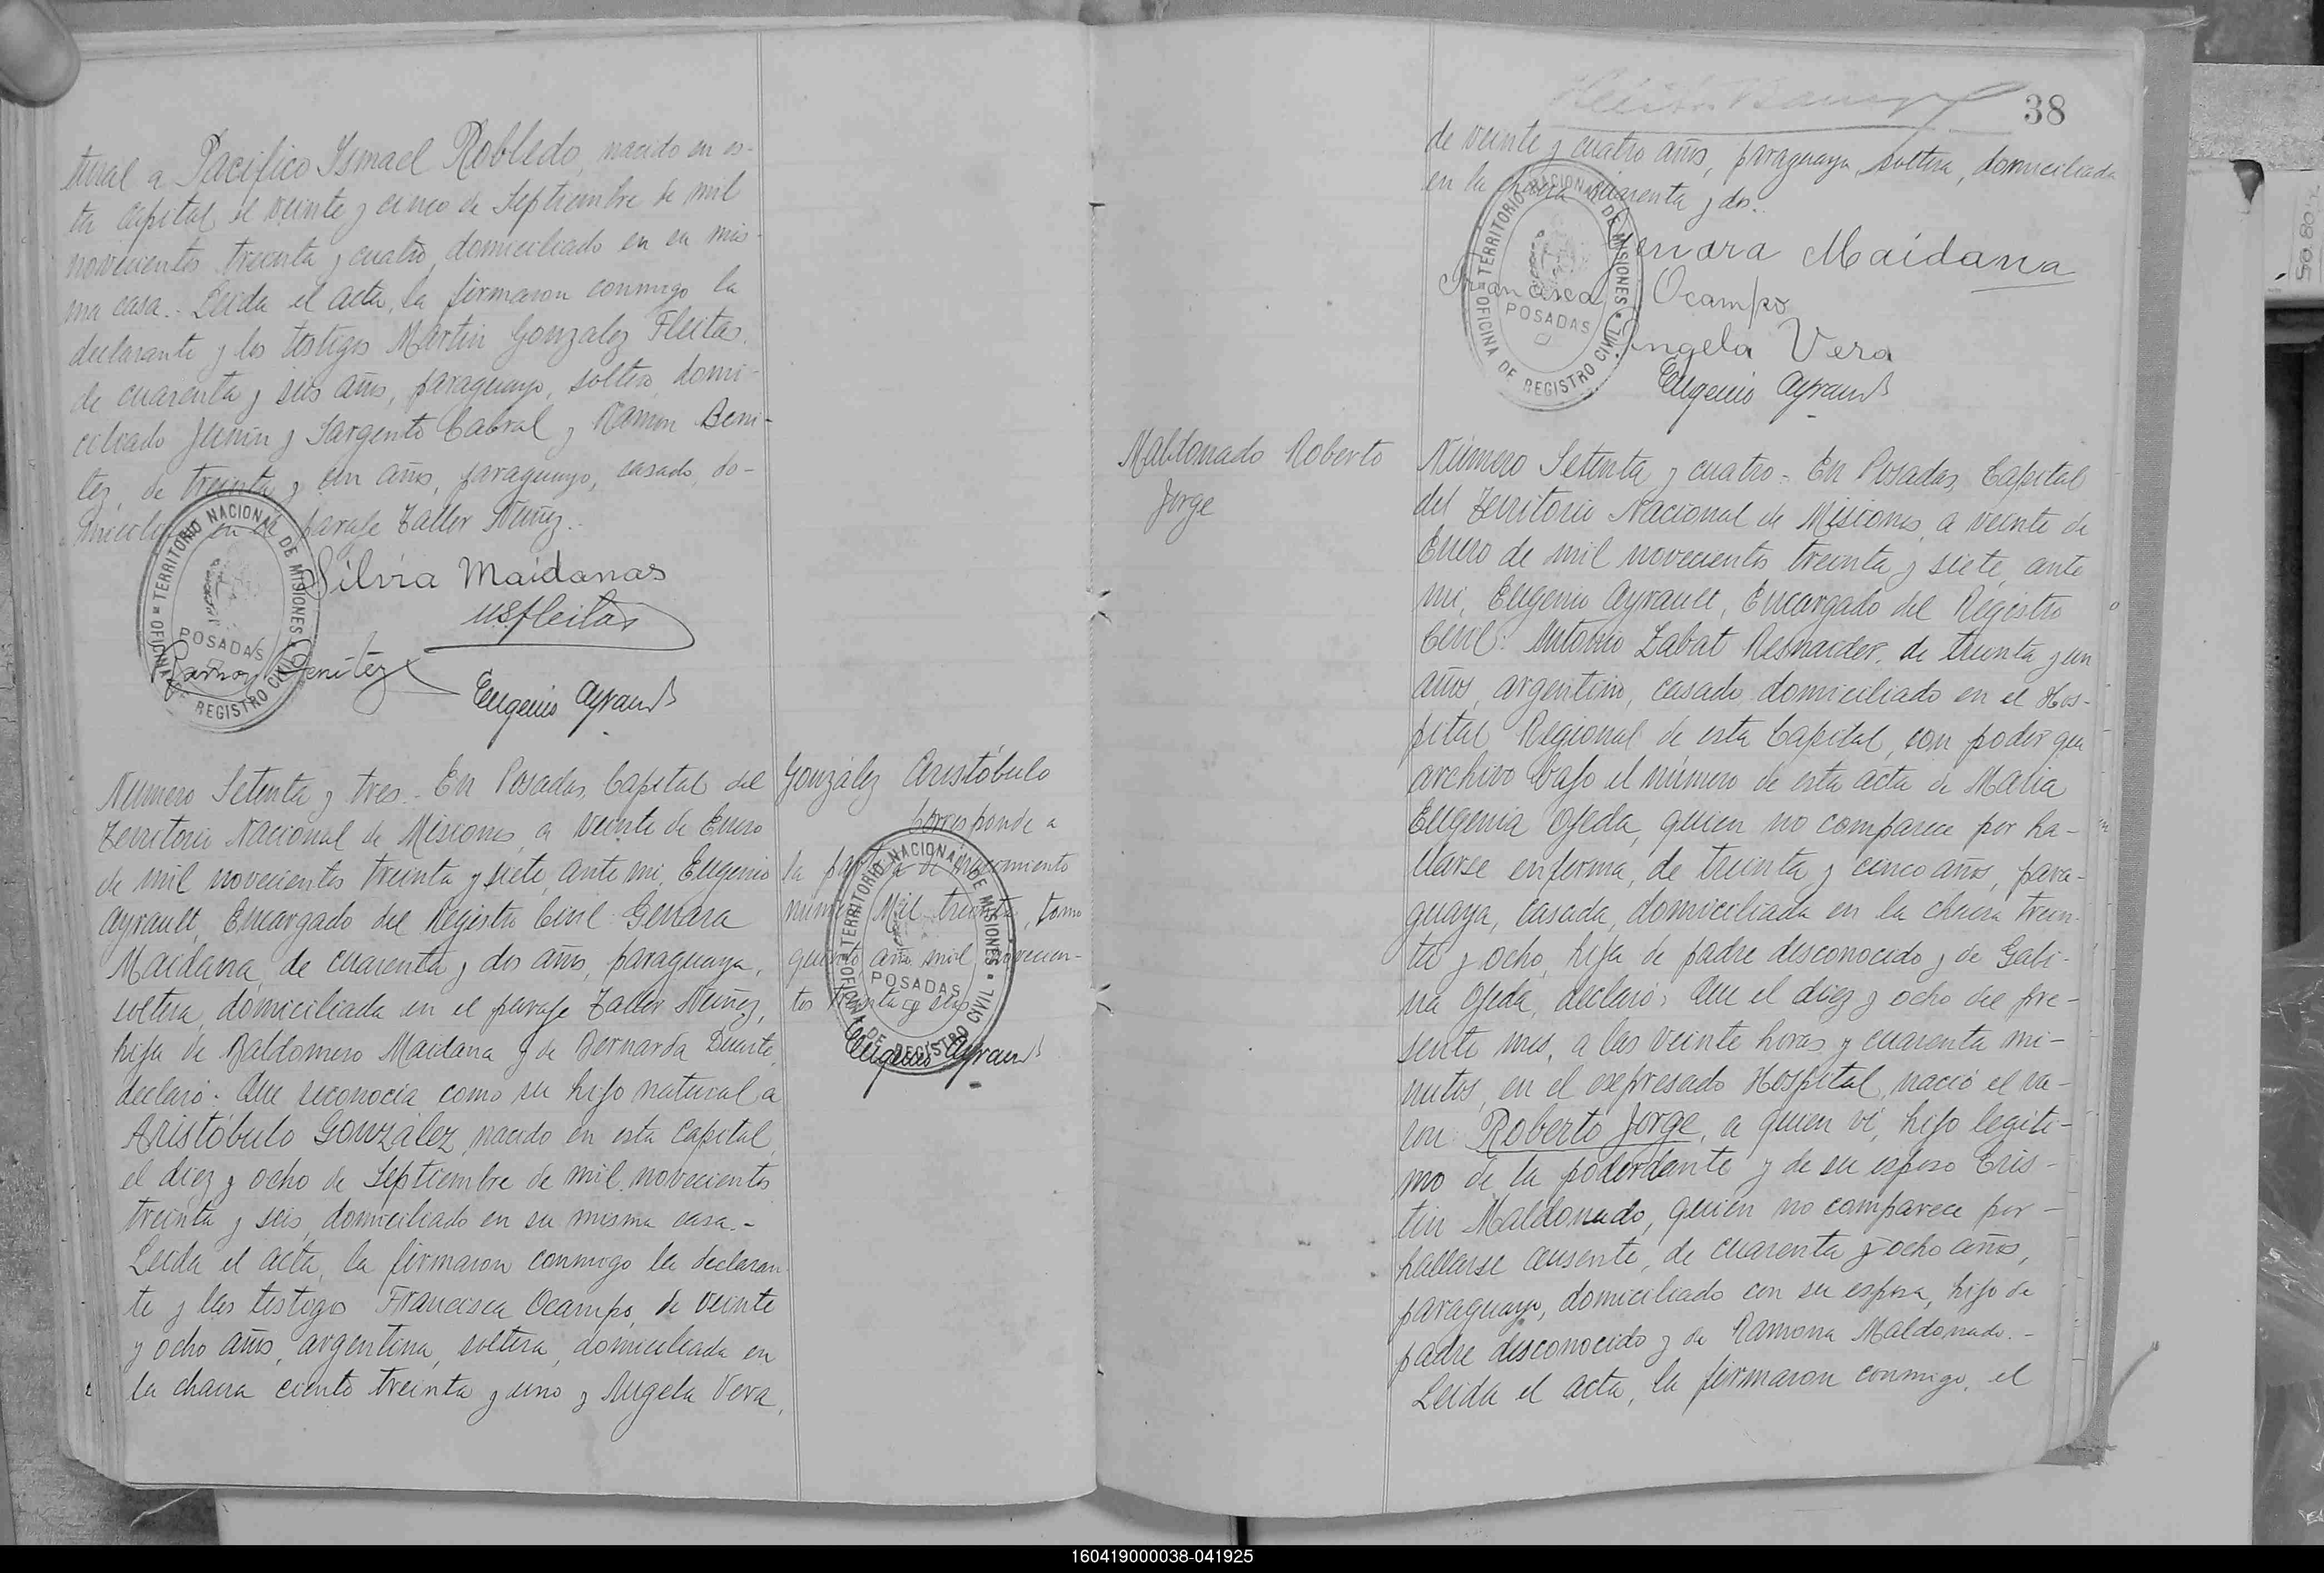 tural a Pacífico Ismael Robledo, nacido en es-
ta Capital el veinte y cinco de Septiembre de mil
novecientos treinta y cuatro, domiciliado en su mis-
ma casa.- Leída el acta, la firmaron conmigo la
declarante y los testigos Martín Gonzalez Fleitas,
de cuarenta y seis años, paraguayo, soltero, domi-
ciliado Junín y Sargento Cabral y Ramón Bení-
tez, de treinta y un años, paraguayo, casado, do-
en el paraje Taller Núñez.-
OFICINA DE REGISTRO CIVIL TERRITORIO NACIONAL DE MISIONES
POSADAS
Silvia Maidanas
Ramon Benitez
Eugenio Ayrault
Número Setenta y tres.- En Posadas, Capital del
Territorio Nacional de Misiones, a veinte de Enero
de mil novecientos treinta y siete, ante mi, Eugenio
Ayrault, Encargado del Registro Civil: Genara
Maidana, de cuarenta y dos años, paraguaya,
soltera, domiciliada en el paraje Taller Núñez,
hija de Baldomero Maidana y de Bernarda Duarte,
declaró: Que reconocía como su hijo natural a
Aristóbulo González, nacido en esta Capital,
el diez y ocho de Septiembre de mil novecientos
treinta y seis, domiciliado en su misma casa.-
Leída el acta, la firmaron conmigo la declaran-
te y las testigos Francisca Ocampo, de veinte
y ocho años, argentina, soltera, domiciliada en
la chacra ciento treinta y uno y Angela Vera,
González Aristóbulo
Corresponde a
la partida de nacimiento
número Mil treinta, tomo
año mil novecien-
tos treinta y seis
OFICINA DE REGISTRO CIVIL TERRITORIO NACIONAL DE MISIONES
POSADAS
Eugenio Ayrault
38
de veinte y cuatro años, paraguaya, soltera, domiciliada
en la chacra cuarenta y dos.-
OFICINA DE REGISTRO CIVIL TERRITORIO NACIONAL DE MISIONES
POSADAS
Genara Maidana
Francisca Ocampo
Angela Vera
Eugenio Ayrault
Maldonado Roberto
Jorge
Número Setenta y cuatro.- En Posadas, Capital
del Territorio Nacional de Misiones, a veinte de
Enero de mil novecientos treinta y siete, ante
mi, Eugenio Ayrault, Encargado del Registro
Civil: Antonio Zabat, de treinta y un
años, argentino, casado, domiciliado en el Hos-
pital Regional de esta Capital, con poder que
archivo bajo el número de esta acta de María
Eugenia Ojeda, quien no comparece por ha-
llarse enferma, de treinta y cinco años, para-
guaya, casada, domiciliada en la chacra trein-
ta y ocho, hija de padre desconocido y de Gabi-
na Ojeda, declaró: Que el diez y ocho del pre-
sente mes, a las veinte horas y cuarenta mi-
nutos, en el expresado Hospital, nació el va-
rón: Roberto Jorge, a quien ví, hijo legíti-
mo de la poderdante y de su esposo Cris-
tín Maldonado, quien no comparece por-
hallarse ausente, de cuarenta y ocho años,
paraguayo, domiciliado con su esposa, hijo de
padre desconocido y de Ramona Maldonado.-
Leída el acta, la firmaron conmigo, el
160419000038-041925